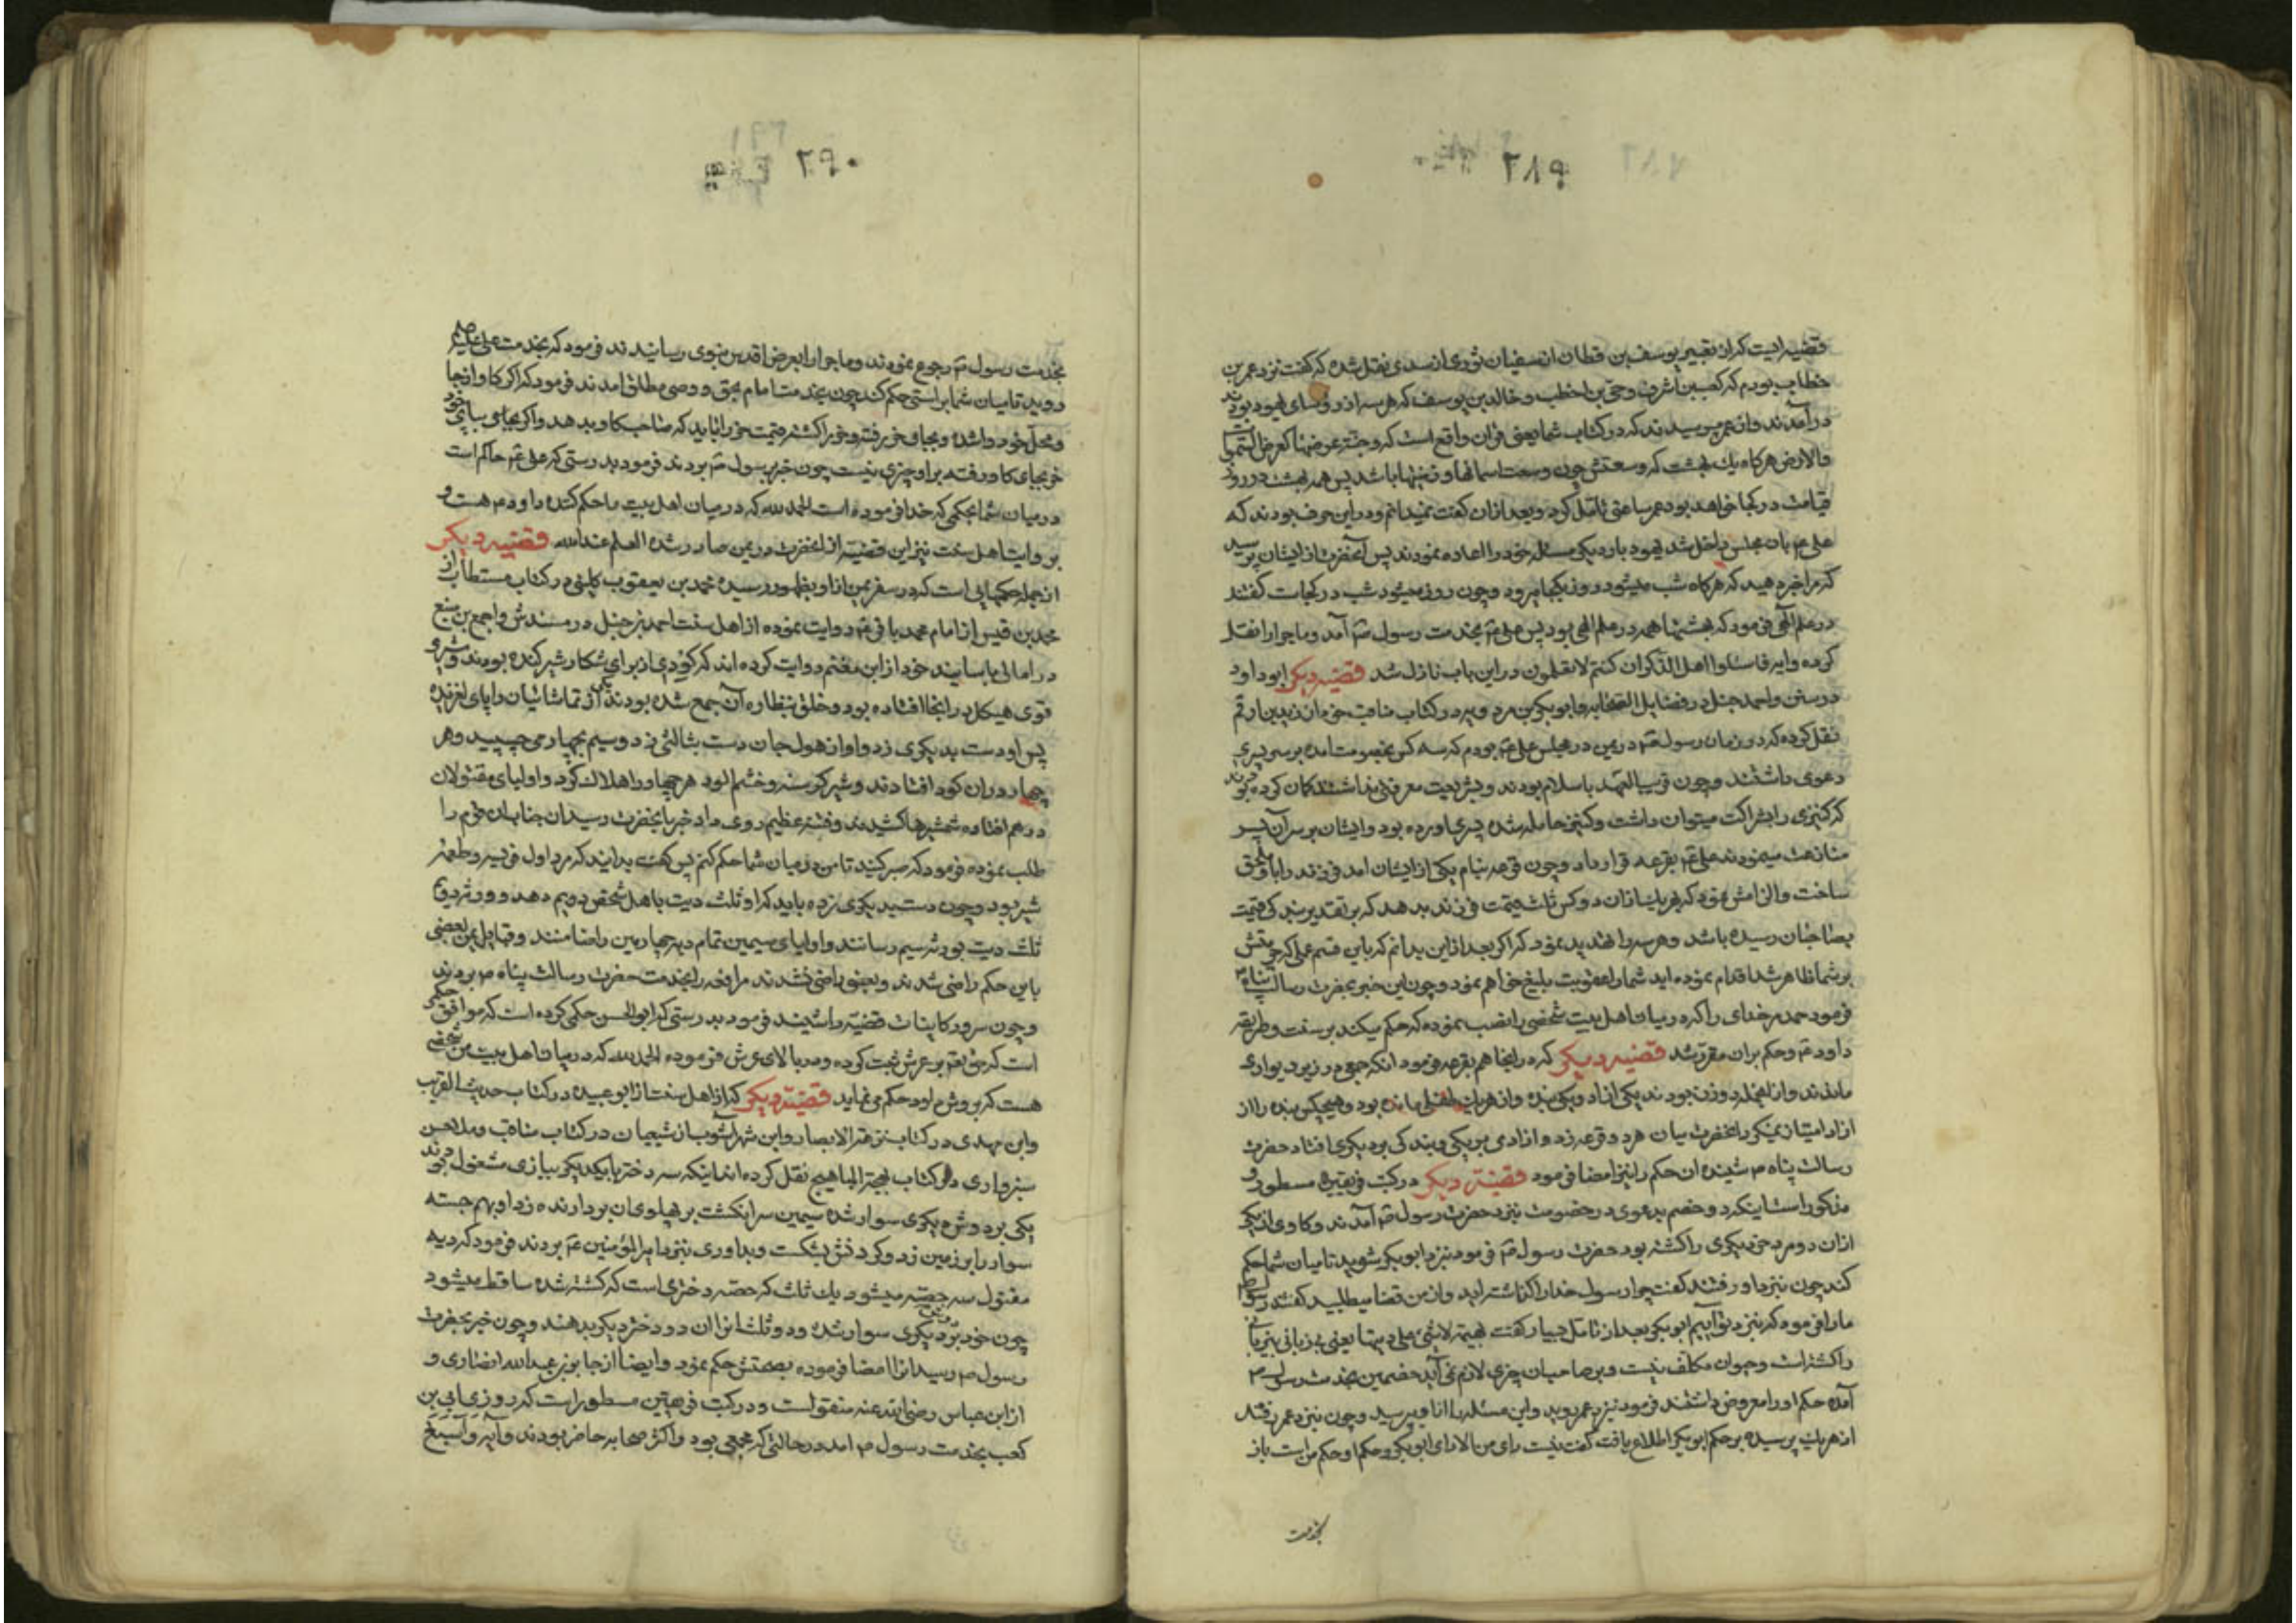 ۲۸۹
قضیه ایست که از تفسیر یوسف بن قطان از سفیان ثوری از سدی نقل شده که گفت نزد عمر بن
خطاب بودم که کعب بن اشرف و حی بن اخطب و خالد بن یوسف که هر سه از رؤسای یهود بودند
در آمدند و از عمر پرسیدند که در کتاب شما یعنی قرآن واقع است که وجنة عرضها کعرض السموات
والارض هرگاه یک بهشت که وسعتش چون وسعت اسمانها و زمینها باشد پس همه بهشت در روز
قیامت در کجا خواهد بود عمر ساعتی تأمل کرد و بعد از ان گفت نمیدانم و در این حرف بودند که
علی ع بان مجلس داخل شد یهود بار دیگر مسئله خود را اعاده نمودند پس آنحضرت از ایشان پرسید
که مرا خبر دهید که هرگاه شب میشود روز بکجا میرود و چون روز میشود شب در کجاست گفتند
در علم الهی فرمود که بهشتها همه در علم الهی بود پس علی ع بخدمت رسول ص آمد و ماجرا را نقل
کرده وایه فاسئلوا اهل الذکر ان کنتم لا تعلمون در این باب نازل شد قضیه دیگر ابو داود
در سنن و احمد حنبل در فضایل الصحابه و ابو بکر بن مردویه در کتاب مناقب خود از زید بن ارقم
نقل کرده که در زمان رسول ص در یمن در مجلس علی ع بودم که سه کس بخصومت امده بر سر پسری
دعوی داشتند و چون قریب العهد باسلام بودند و بشریعت معرفتی نداشتند گمان کرده بودند
که کنیزی را بشراکت میتوان داشت و کنیز حامله شده پسری اورده بود و ایشان بر سر آن پسر
منازعت مینمودند علی ع بقرعه قرار داد و چون قرعه بنام یکی از ایشان امد فرزند را باو ملحق
ساخت و الزامش نمود که بهر یک از ان دو کس ثلث قیمت فرزند بدهد که بر تقدیر بندگی قیمت
بصاحبان رسیده باشد و هر سه را تهدید نمود که اگر بعد از این بدانم که باین قسم عملی که حرمتش
بر شما ظاهر شد اقدام نموده اید شما را عقوبت بلیغ خواهم نمود و چون این خبر بحضرت رسالت پناه ص
فرمود حمد مر خدای را که در میان اهل بیت شخصی را نصب نموده که حکم میکند بر سنت و طریقه
داود ع و حکم بران مقرر شد قضیه دیگر که در انجا هم بقرعه فرمود انکه جمعی در زیر دیواری
ماندند و از انجمله دو زن بودند یکی ازاد و یکی بنده و از هر یک طفلی مانده بود و هیچکس بنده را از
ازاد امتیاز نمیکرد انحضرت میان هر دو قرعه زد و ازادی بر یکی و بندگی بر دیگری افتاد حضرت
رسالت پناه ص شنیده ان حکم را نیز امضا فرمود قضیة دیگر در کتب فریقین مسطور و
مذکور است اینکه دو خصم بدعوی در خصومت نزد حضرت رسول ص آمدند و گاوی از یکی
ازان دو مرد خر دیگری را کشته بود حضرت رسول ص فرمود نزد ابو بکر شوید تا میان شما حکم
کند چون نزد او رفتند گفت چرا رسول خدا را گذاشته اید و از من قضا میطلبید گفتند رسول ص
ما را فرمود که نزد تو آییم ابو بکر بعد از تامل بسیار گفت بهیمة لا شیٔ علی ربها یعنی بی زبانی بی زبانی
را کشته است و حیوان مکلف نیست و بر صاحبان چیزی لازم نمی آید خصمین بخدمت رسول ص
آمده حکم او را معروض داشتند فرمود نزد عمر روید و این مسئله را از او پرسید و چون نزد عمر رفتند
از هر یک پرسیده بر حکم ابو بکر اطلاع یافت گفت نیست رای من الا رای ابو بکر و حکم او حکم من است باز
بخدمت
۲۹۰
بخدمت رسول ص رجوع نمودند و ماجرا را بعرض اقدس نبوی رسانیدند فرمود که بخدمت علی
روید تا میان شما براستی حکم کند چون بخدمت امام بحق و وصی مطلق امدند فرمود که اگر گاو از جا
و محل خود وا شده و بجای خر رفته و خر را کشته قیمت خر را باید که صاحب گاو بدهد و اگر بپای خود
خر بجای گاو رفته بر او چیزی نیست چون خبر برسول ص بردند فرمود بدرستی که علی ع حاکم است
در میان شما بحکمی که خدا فرموده است الحمد لله که در میان اهل بیت ما حکم کننده داودم هست و
بروایت اهل سنت نیز این قضیه از انحضرت در یمن صادر شده العلم عند الله قضیه دیگر
از جمله حکمهایی است که در سفر یمن از او بظهور رسیده محمد بن یعقوب کلینی در کتاب مستطاب از
محمد بن قیس از امام محمد باقر ع روایت نموده از اهل سنت احمد بن حنبل در مسندش و احمد بن منیع
در امالی باسانید خود از ابن مغتم روایت کرده اند که گودی از برای شکار شیر کنده بودند و شیر
قوی هیکل در انجا افتاده بود و خلق بنظاره آن جمع شده بودند یکی از تماشائیان را پای لغزیده
پس او دست بدیگری زد و او از هول جان دست بثالثی زد و سیم بچهارمی چسپید و هر
چهار دران گود افتادند و شیر گرسنه و خشم الود هر چهار را هلاک کرد و اولیای مقتولان
در هم افتاده شمشیرها کشیدند و فتنه عظیم روی داد خبر بانحضرت رسیدان جناب ان قوم را
طلب نموده فرمود که صبر کنید تا من در میان شما حکم کنم پس گفت بدانید که مرد اول فریسه و طعمه
شیر بود و چون دست بدیگری زده باید که او ثلث دیت باهل شخص دویم دهد و ورثه دویم
ثلث دیت بورثه سیم رسانند و اولیای سیمین تمام دیه چهارمین را ضامنند و قبایل یمن بعضی
باین حکم راضی شدند و بعضی راضی نشدند مرافعه را بخدمت حضرت رسالت پناه ص بردند
و چون سرور کاینات قضیه را شنید فرمود بدرستی که ابو الحسن حکمی کرده است که موافق حکم
است که حق تع بر عرش ثبت کرده و مدبالای عرش فرموده الحمد لله که در میان اهل بیت من شخصی
هست که بروش داود حکم می نماید قضیة دیگر که از اهل سنت از ابو عبیده در کتاب حدیث الغریب
وابن مهدی در کتاب نزهة الابصار و ابن شهر آشوب از شیعیان در کتاب مناقب و ملا حسن
سبزواری در کتاب بهجة المباهج نقل کرده اند اینکه سه دختر با یکدیگر ببازی مشغول بودند
یکی بر دوش دیگری سوار شده سیمین سر انگشت بر پهلوی ان بردارنده زد او بهم جسته
سوار را بر زمین زد و گردنش بشکست و بداوری نزد امیر المؤمنین ع بردند فرمود که دیه
مقتول سه حصه میشود یک ثلث که حصه دختری است که کشته شده ساقط میشود
چون خود بر دوش دیگری سوار شده و دو ثلث انرا ان دو دختر دیگر بدهند و چون خبر بحضرت
رسول ص رسید انرا امضا فرموده بصحتش حکم نمود و ایضا از جابر بن عبد الله انصاری و
از ابن عباس رضی الله عنه منقول است و در کتب فریقین مسطور است که روزی ابی بن
کعب بخدمت رسول ص امد در حالتی که مجمعی بود و اکثر صحابه حاضر بودند و آیه وأسبغ